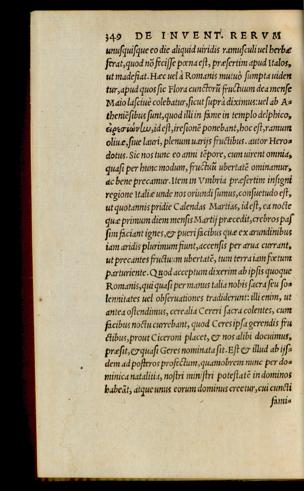 349 DE INVENT. RERVM
unusquisque eo die aliquid uiridis ramusculi uel herbæ
ferat, quod nõ fecisse pœna est, præsertim apud Italos,
ut madefiat. Hæc uel à Romanis mutuò sumpta uiden
tur, apud quos sic Flora cunctorũ fructuum dea mense
Maio lasciuè colebatur, sicut suprà diximus: uel ab A-
theniẽsibus sunt, quod illi in fame in templo delphico,
id est, iresionẽ ponebant, hoc est, ramum
oliuæ, siue lauri, plenum uarijs fructibus. autor Hero-
dotus. Sic nos tunc eo anni tẽpore, cum uirent omnia,
quasi per hunc modum, fructuũ ubertatẽ ominamur,
ac bene precamur. Item in Vmbria præsertim insigni
regione Italiæ unde nos oriundi sumus, consuetudo est,
ut quotannis pridie Calendas Martias, id est, ea nocte
quæ primum diem mensis Martij præcedit, crebros pas
sim faciant ignes, & pueri facibus quæ ex arundinibus
iam aridis plurimum fiunt, accensis per arua currant,
ut precantes fructuum ubertatẽ, tum terra iam fœtum
parturiente. Quod acceptum dixerim ab ipsis quoque
Romanis, qui quasi per manus talia nobis sacra seu so-
lennitates uel obseruationes tradiderunt: illi enim, ut
antea ostendimus, cerealia Cereri sacra colentes, cum
facibus noctu currebant, quod Ceres ipsa gerendis fru
ctibus, prout Ciceroni placet, & nos alibi docuimus,
præsit, & quasi Geres nominata sit. Est & illud ab ijs-
dem ad postros profectum, quamobrem nunc per do-
minica natalitia, nostri ministri potestatẽ in dominos
habeãt, atque unus eorum dominus creetur, cui cuncti
fami-